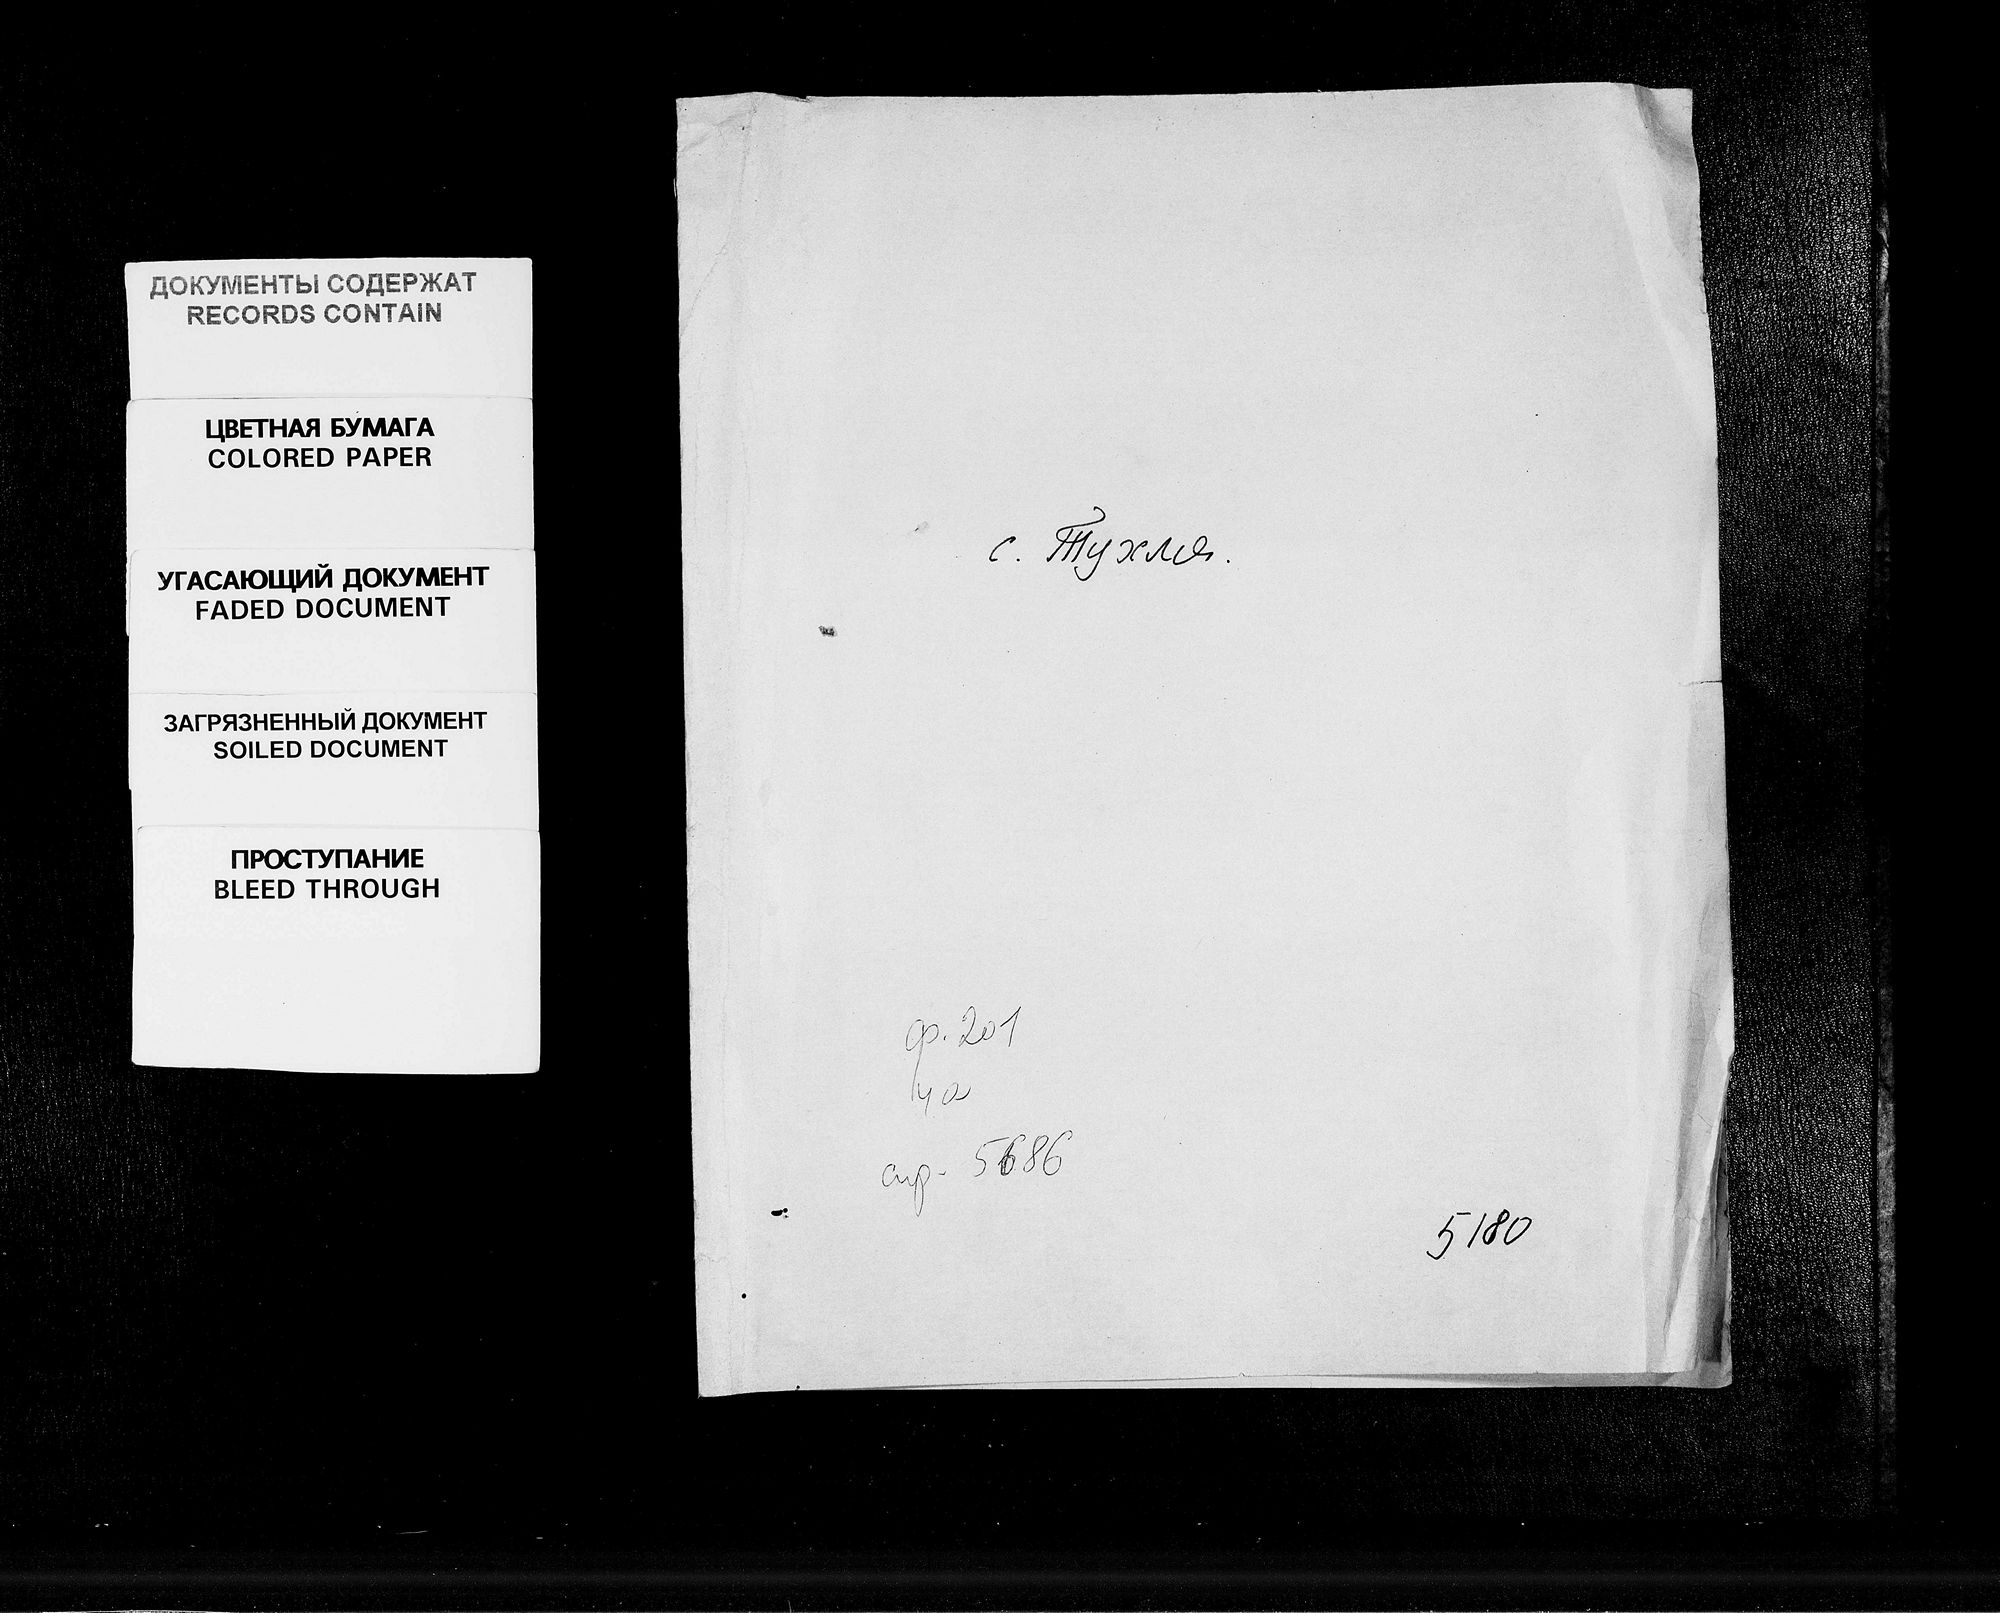 ДОКУМЕНТЫ СОДЕРЖАТ
RECORDS CONTAIN
ЦВЕТНАЯ БУМАГА
COLORED PAPER
УГАСАЮЩИЙ ДОКУМЕНТ
FADED DOCUMENT
ЗАГРЯЗНЕННЫЙ ДОКУМЕНТ
SOILED DOCUMENT
ПРОСТУПАНИЕ
BLEED THROUGH
с. Тухля.
ф. 201
4а
спр. 5686
5180